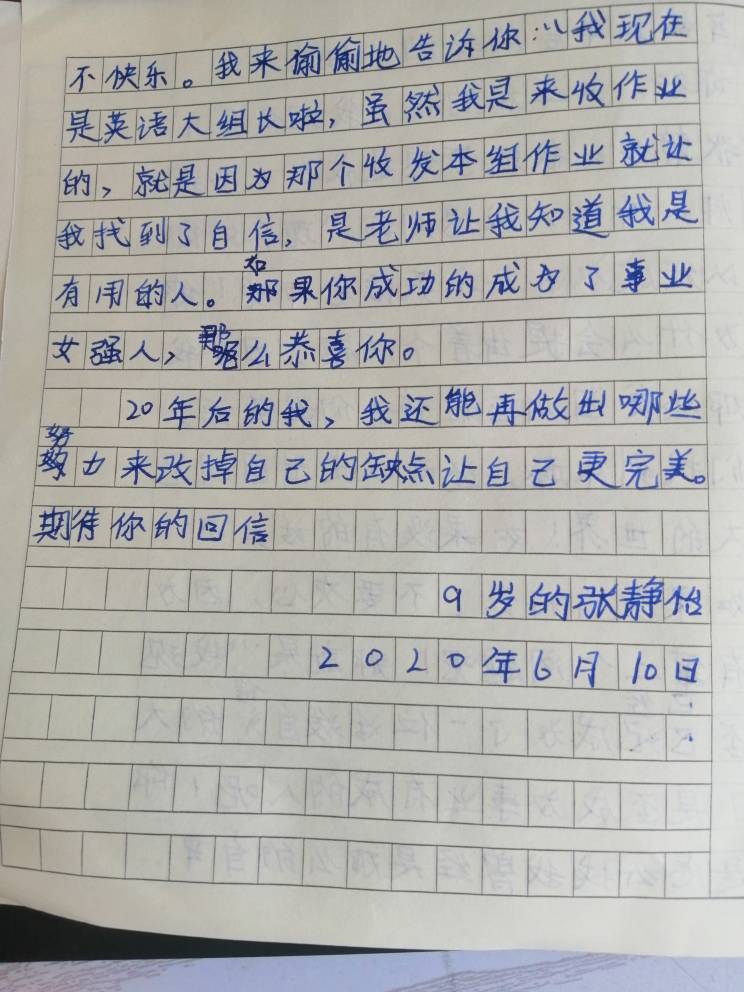 不快乐。我来偷偷地告诉你:"我现在
是英语大组长啦,虽然我是来收作业
的,就是因为那个收发本组作业就让
我找到了自信,是老师让我知道我是
有用的人。如果你成功的成为了事业
女强人,那么恭喜你。
20年后的我,我还能再做出哪些
努力来改掉自己的缺点让自己更完美。
期待你的回信
9岁的张静怡
2020年6月10日